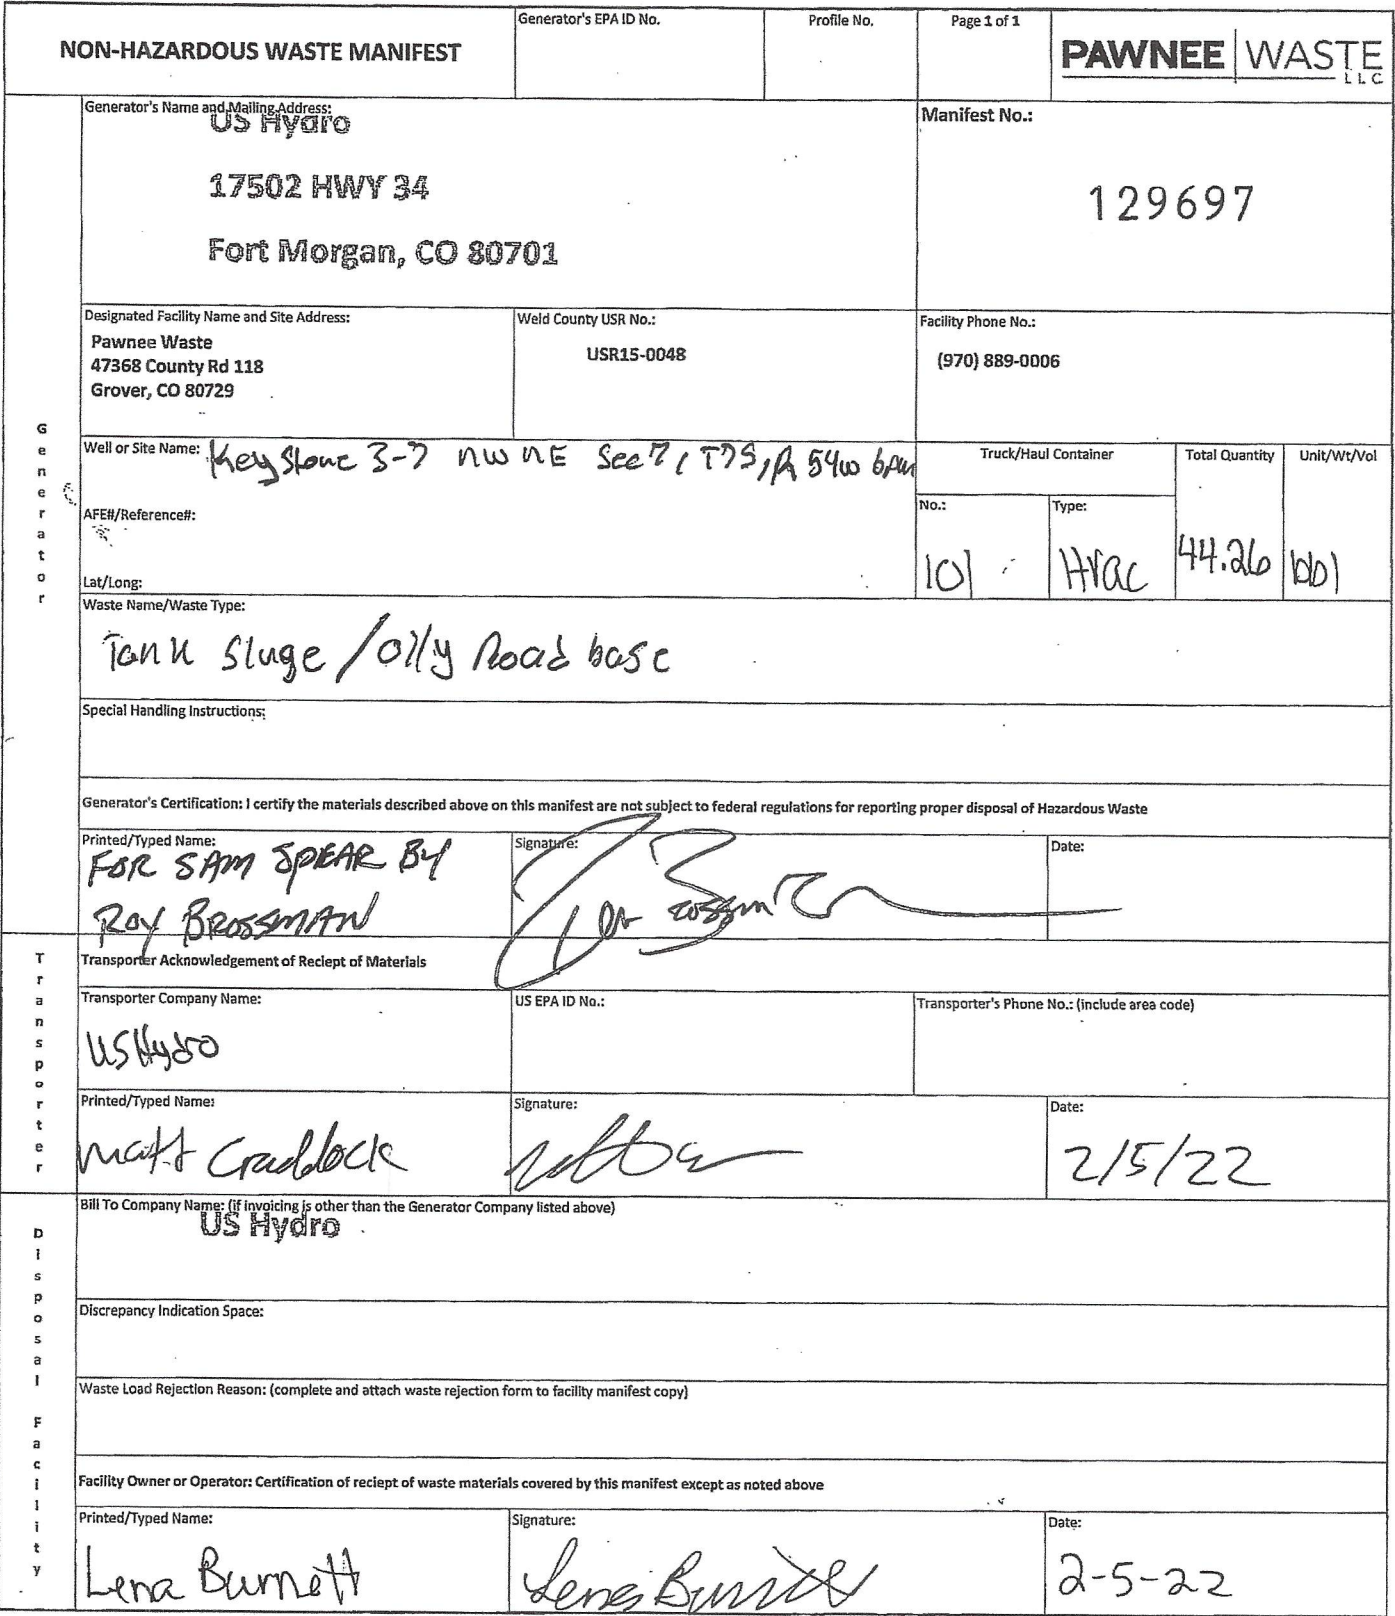 NON-HAZARDOUS WASTE MANIFEST
Generator's EPA ID No.
Profile No.
Page 1 of 1
PAWNEE WASTE
LLC
Generator's Name and Mailing Address:
US Hydro
17502 HWY 34
Fort Morgan, CO 80701
Manifest No.:
129697
Designated Facility Name and Site Address:
Pawnee Waste
47368 County Rd 118
Grover, CO 80729
Weld County USR No.:
USR15-0048
Facility Phone No.:
(970) 889-0006
Generator
Well or Site Name: Keystone 3-7 NWNE Sec 7, T7S, R 54W 6pm
AFE#/Reference#:
Lat/Long:
Truck/Haul Container
No.:
101
Type:
HVac
Total Quantity
44.26
Unit/Wt/Vol
bbl
Waste Name/Waste Type:
Tank Sluge / Oily Road base
Special Handling Instructions:
Generator's Certification: I certify the materials described above on this manifest are not subject to federal regulations for reporting proper disposal of Hazardous Waste
Printed/Typed Name:
FOR SAM SPEAR BY
ROY BROSSMAN
Signature:
Date:
Transporter
Transporter Acknowledgement of Reciept of Materials
Transporter Company Name:
US Hydro
US EPA ID No.:
Transporter's Phone No.: (include area code)
Printed/Typed Name:
Matt Craddock
Signature:
Date:
2/5/22
Disposal Facility
Bill To Company Name: (if invoicing is other than the Generator Company listed above)
US Hydro
Discrepancy Indication Space:
Waste Load Rejection Reason: (complete and attach waste rejection form to facility manifest copy)
Facility Owner or Operator: Certification of reciept of waste materials covered by this manifest except as noted above
Printed/Typed Name:
Lena Burnett
Signature:
Lena Burnett
Date:
2-5-22